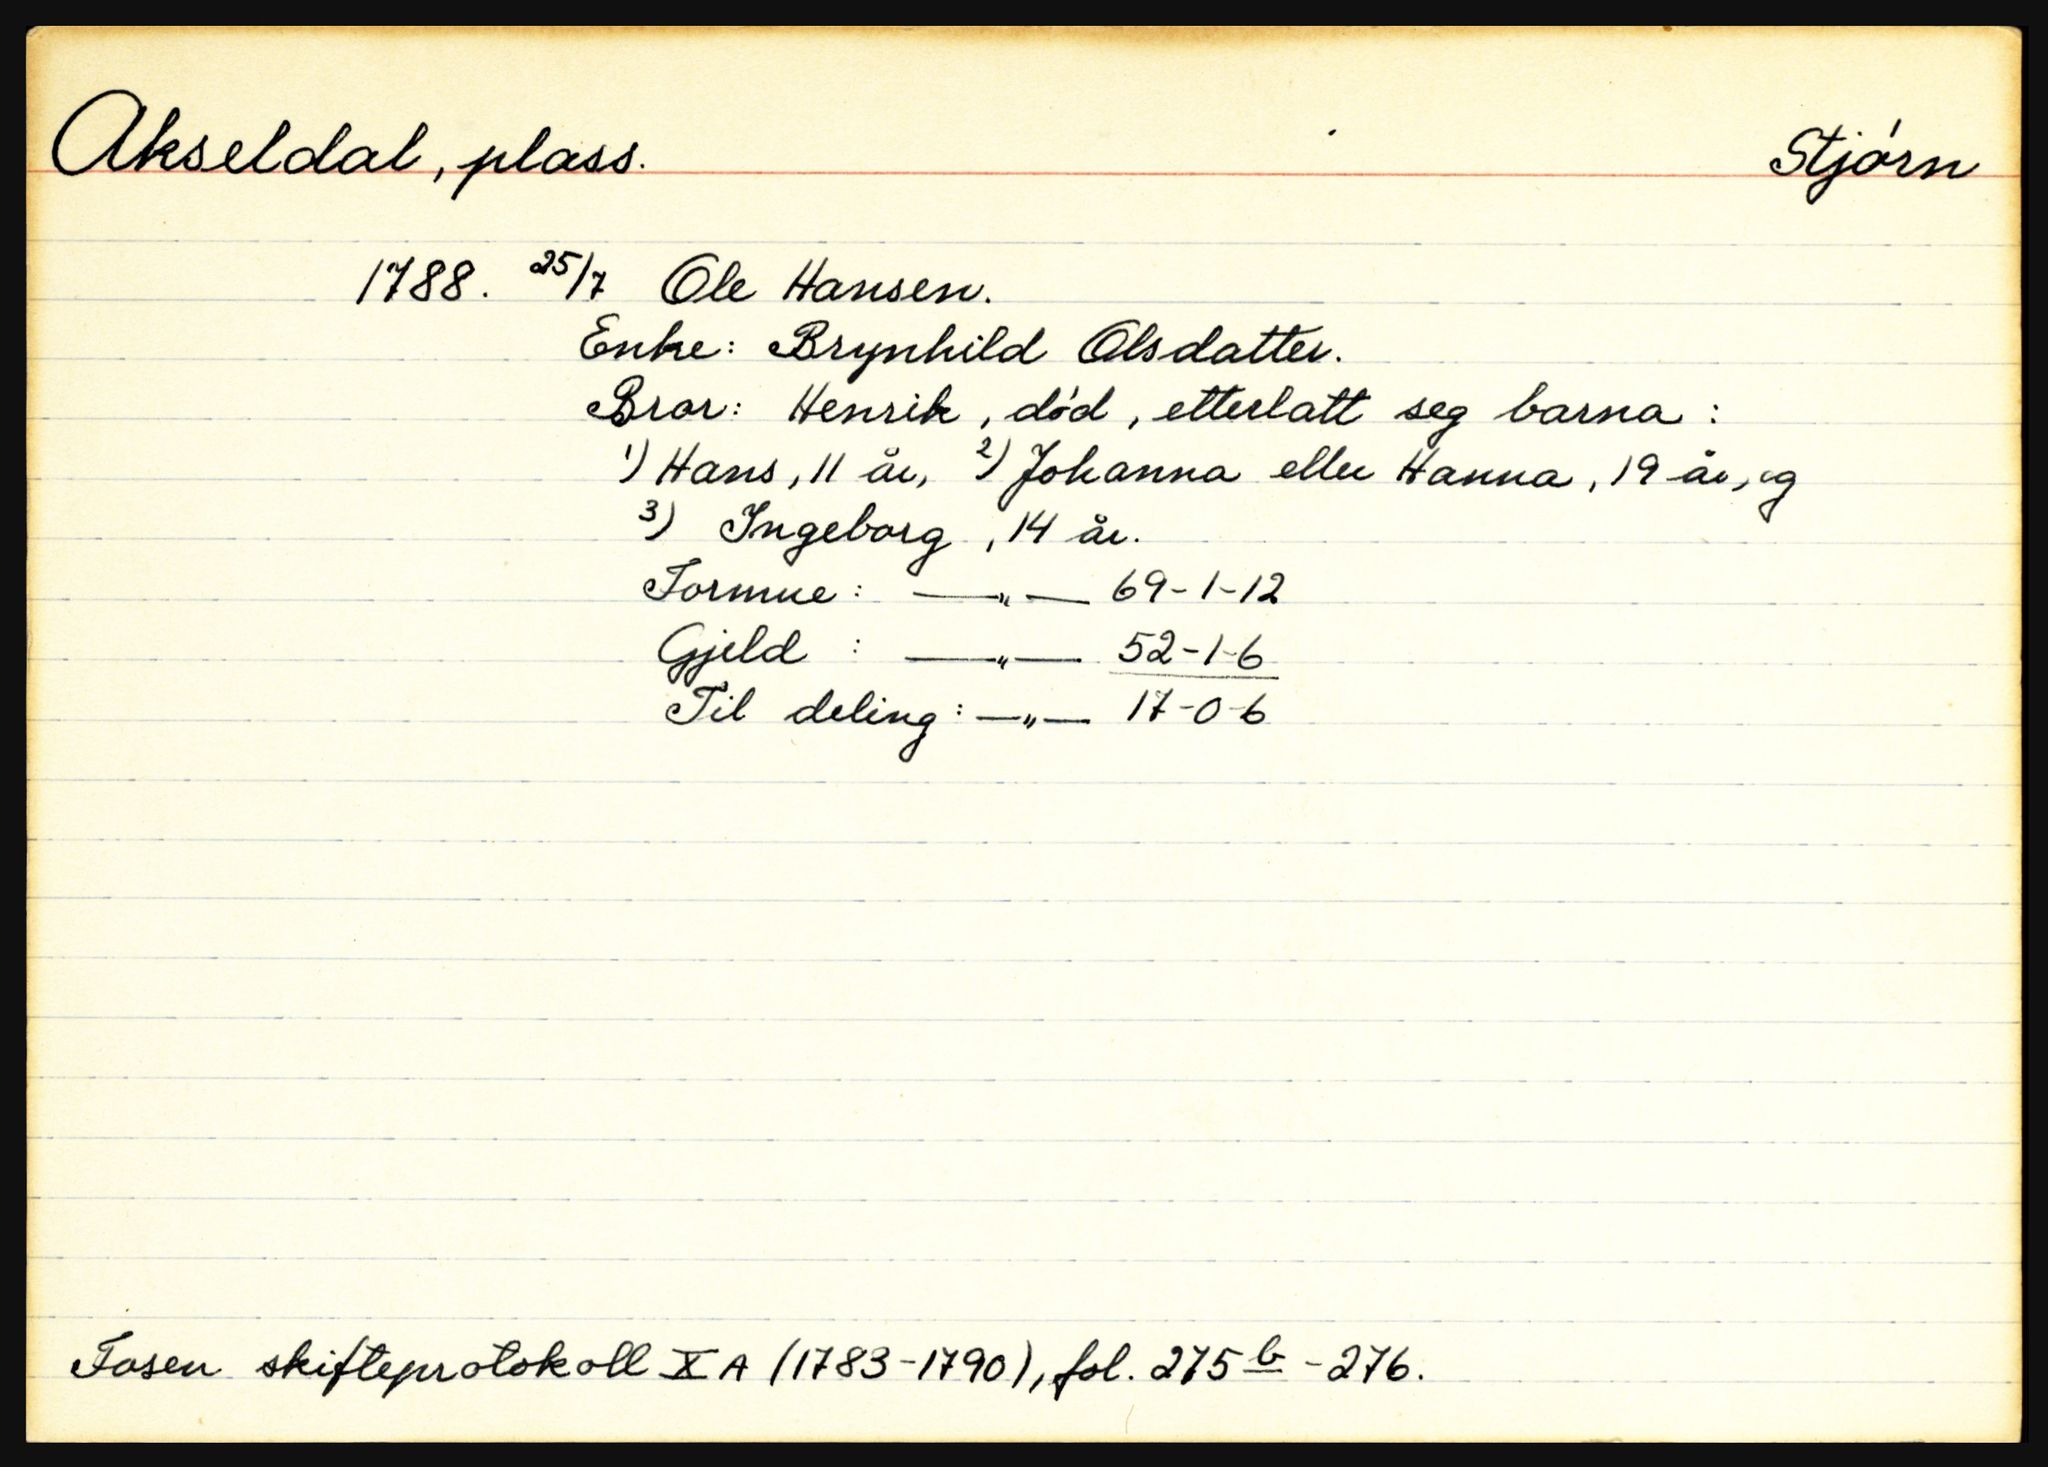 Akseldal, plass. Stjórn
1788. 25/7 Ole Hansen.
Enke: Brynhild Olsdatter.
Bror: Henrik, död, etterlatt seg barna:
1) Hans, 11 år, 2) Johanna eller Hanna, 19 år, og
3) Ingeborg, 14 år.
Formue: —„— 69-1-12
Gjeld : —„— 52-1-6
Til deling: —„— 17-0-6
Fosen skifteprotokoll X A (1783-1790), fol. 275 b - 276.